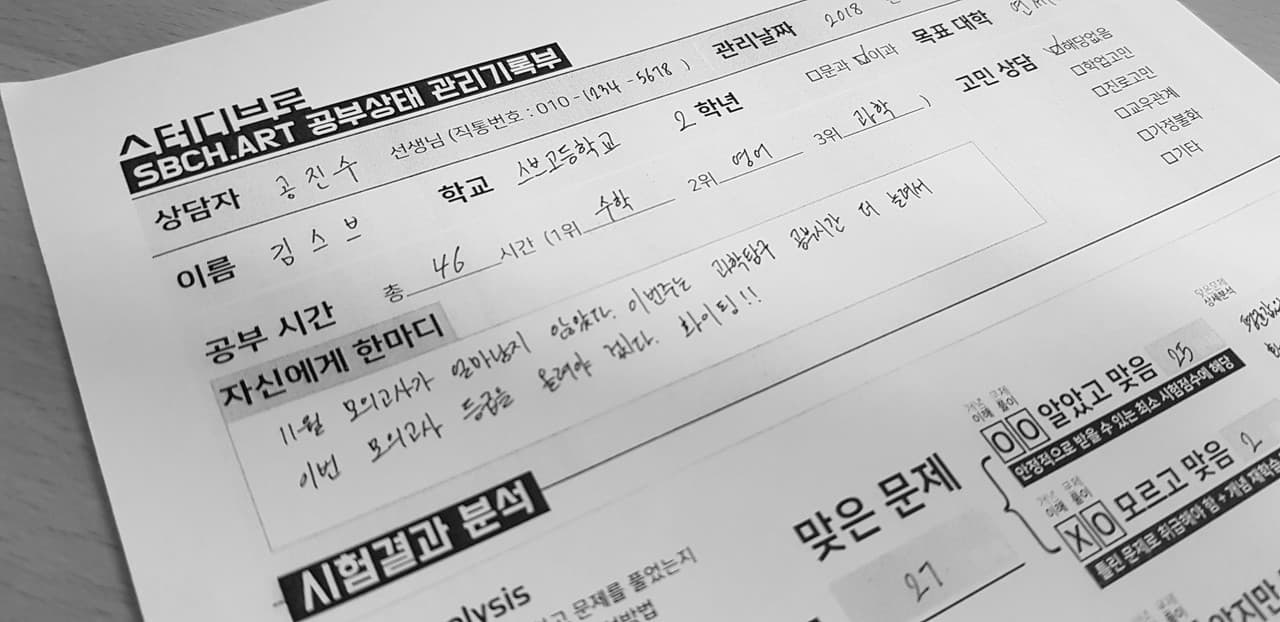 스터디브로
SBCH.ART 공부상태 관리기록부
상담자 공진수 선생님 (직통번호 : 010-1234-5678) 관리날짜 2018
이름 김스브 학교 스브고등학교 2학년 □문과 ☑이과 목표 대학
공부 시간 총 46 시간 (1위 수학 2위 영어 3위 과학) 고민 상담 ☑해당없음
□학업고민
□진로고민
□교우관계
□가정불화
□기타
자신에게 한마디
11월 모의고사가 얼마남지 않았다. 이번주는 과학탐구 공부시간 더 늘려서
이번 모의고사 등급을 올려야 겠다. 화이팅!!
시험결과 분석
alysis
고 문제를 풀었는지
방법
맞은 문제
27
개념 문제
이해 풀이
OO 알았고 맞음 25
안정적으로 받을 수 있는 최소 시험점수에 해당
개념 문제
이해 풀이
XO 모르고 맞음 2
틀린 문제로 취급해야 함 + 개념 재학습
맞은문제
상세분석
개념 문제
알지만